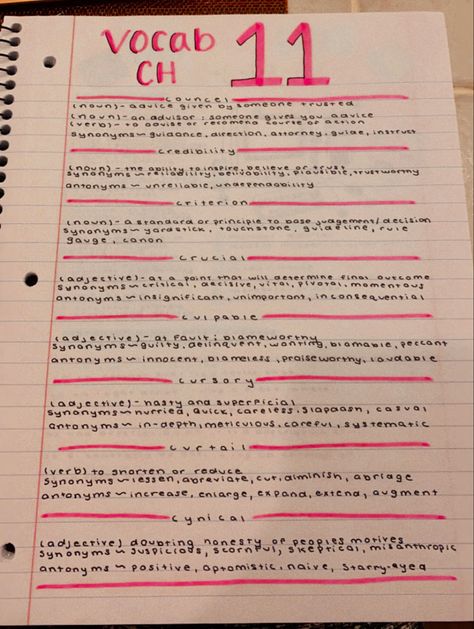 Vocab 11
CH
councel
(noun) - advice given by someone trusted
(noun) - an advisor : someone gives you advice
(verb) - to advise or recomend course of action
Synonyms ~ guidance, direction, attorney, guide, instruct
Credibility
(noun) - the ability to inspire, believe or trust
Synonyms ~ reliability, plausible, trustworthy
antonyms ~ unreliable, undependability
criterion
(noun) - a standard or principle to base judgement/decision
Synonyms ~ yardstick, touchstone, guideline, rule
gauge, canon
crucial
(adjective) - at a point that will determine final outcome
Synonyms ~ critical, decisive, vital, pivotal, momentous
antonyms ~ insignificant, unimportant, inconsequential
culpable
(adjective) - at fault ; blameworthy
Synonyms ~ guilty, delinquent, wanting, blamable, peccant
antonyms ~ innocent, blameless, praiseworthy, laudable
cursory
(adjective) - hasty and superficial
Synonyms ~ hurried, quick, careless, slapdash, casual
antonyms ~ in-depth, meticulous, careful, systematic
curtail
(verb) to shorten or reduce
Synonyms ~ lessen, abreviate, cut, diminish, abridge
antonyms ~ increase, enlarge, expand, extend, augment
cynical
(adjective) doubting honesty of peoples motives
Synonyms ~ suspicious, scornful, skeptical, misanthropic
antonyms ~ positive, optomistic, naive, starry-eyed